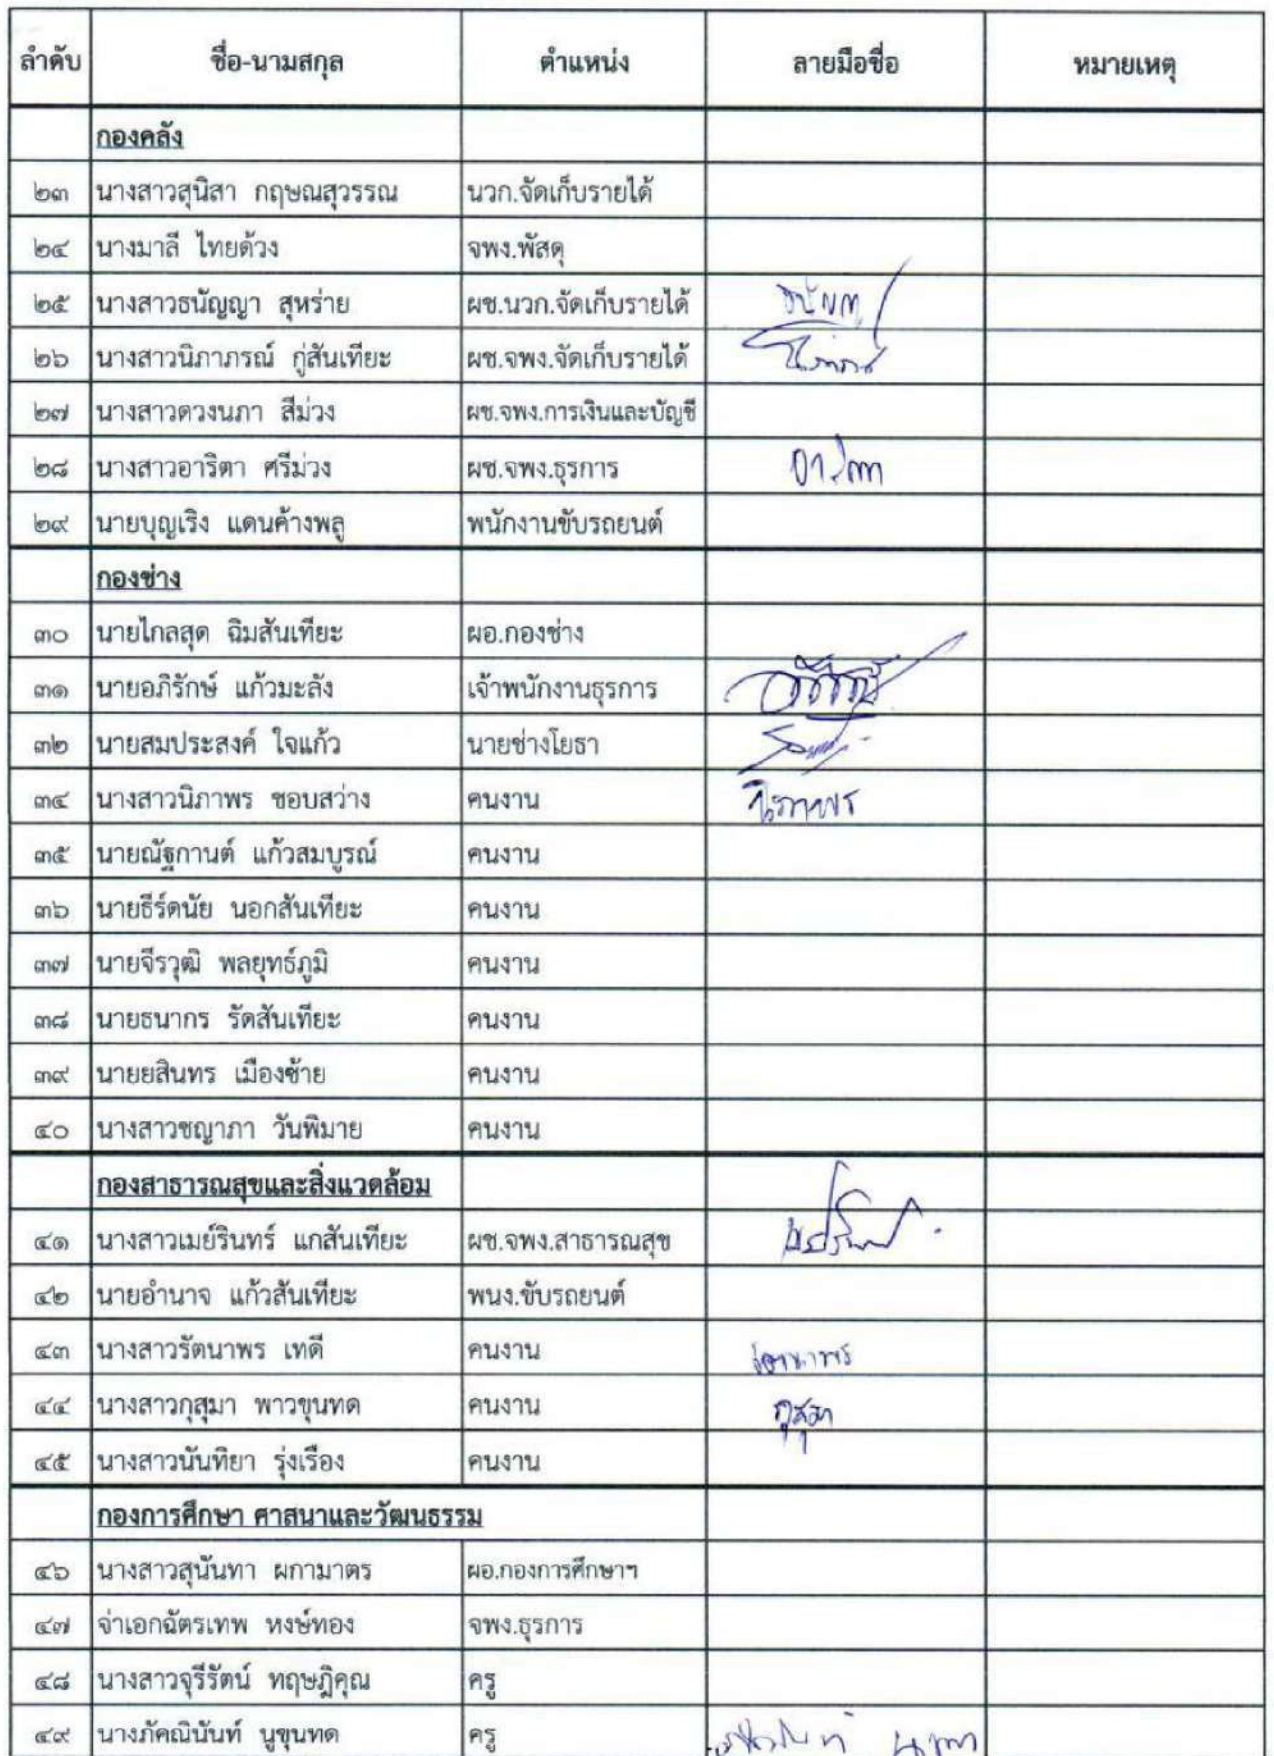 ลำดับ ชื่อ-นามสกุล ตำแหน่ง ลายมือชื่อ หมายเหตุ
กองคลัง
๒๓ นางสาวสุนิสา กฤษณสุวรรณ นวก.จัดเก็บรายได้
๒๔ นางมาลี ไทยด้วง จพง.พัสดุ
๒๕ นางสาวธนัญญา สุหร่าย ผช.นวก.จัดเก็บรายได้
๒๖ นางสาวนิภาภรณ์ กู่สันเทียะ ผช.จพง.จัดเก็บรายได้
๒๗ นางสาวดวงนภา สีม่วง ผช.จพง.การเงินและบัญชี
๒๘ นางสาวอาริตา ศรีม่วง ผช.จพง.ธุรการ อาริตา
๒๙ นายบุญเริง แดนค้างพลู พนักงานขับรถยนต์
กองช่าง
๓๐ นายไกลสุด ฉิมสันเทียะ ผอ.กองช่าง
๓๑ นายอภิรักษ์ แก้วมะลัง เจ้าพนักงานธุรการ
๓๒ นายสมประสงค์ ใจแก้ว นายช่างโยธา
๓๔ นางสาวนิภาพร ชอบสว่าง คนงาน นิภาพร
๓๕ นายณัฐกานต์ แก้วสมบูรณ์ คนงาน
๓๖ นายธีร์ดนัย นอกสันเทียะ คนงาน
๓๗ นายจีรวุฒิ พลยุทธ์ภูมิ คนงาน
๓๘ นายธนากร รัดสันเทียะ คนงาน
๓๙ นายยสินทร เมืองซ้าย คนงาน
๔๐ นางสาวชญาภา วันพิมาย คนงาน
กองสาธารณสุขและสิ่งแวดล้อม
๔๑ นางสาวเมย์รินทร์ แกสันเทียะ ผช.จพง.สาธารณสุข
๔๒ นายอำนาจ แก้วสันเทียะ พนง.ขับรถยนต์
๔๓ นางสาวรัตนาพร เทดี คนงาน รัตนาพร
๔๔ นางสาวกุสุมา พาวขุนทด คนงาน กุสุมา
๔๕ นางสาวนันทิยา รุ่งเรือง คนงาน
กองการศึกษา ศาสนาและวัฒนธรรม
๔๖ นางสาวสุนันทา ผกามาตร ผอ.กองการศึกษาฯ
๔๗ จ่าเอกฉัตรเทพ หงษ์ทอง จพง.ธุรการ
๔๘ นางสาวจุรีรัตน์ ทฤษฎิคุณ ครู
๔๙ นางภัคณินันท์ นูขุนทด ครู